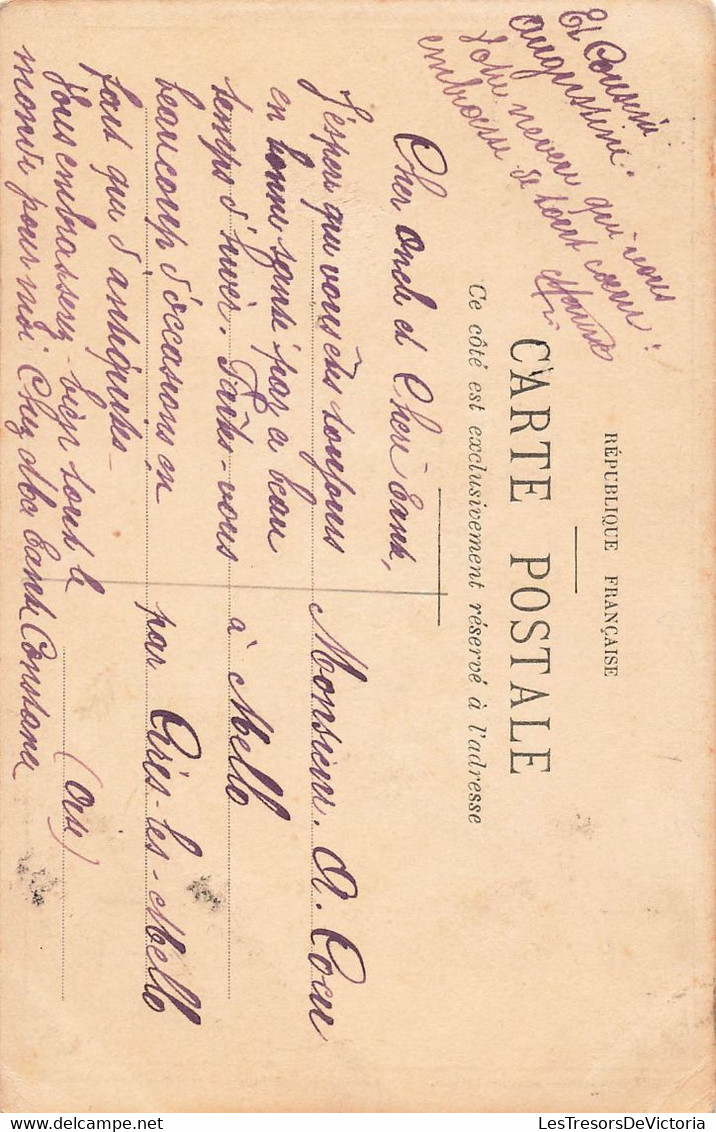 RÉPUBLIQUE FRANÇAISE
CARTE POSTALE
Ce côté est exclusivement réservé à l'adresse
Cher oncle et Chère tante,
J'espère que vous êtes toujours
en bonne santé par ce beau
temps d'hiver. Faites-vous
beaucoup d'occasions en
fait qu d'antiquités
Vous embrasserez bien tout le
monde pour moi Chez Me tante Constance
Et Cousine
augustine.
Votre neveu qui vous
embrasse de tout cœur
Monsieur. A. Cocu
à Mello
par Cires-les-Mello
(Oise)
LesTresorsDeVictoria
https://www.delcampe.net